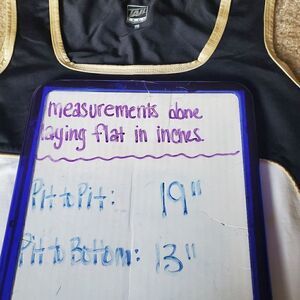 TAIL
measurements done
laying flat in inches.
Pit to Pit: 19"
Pit to Bottom: 13"